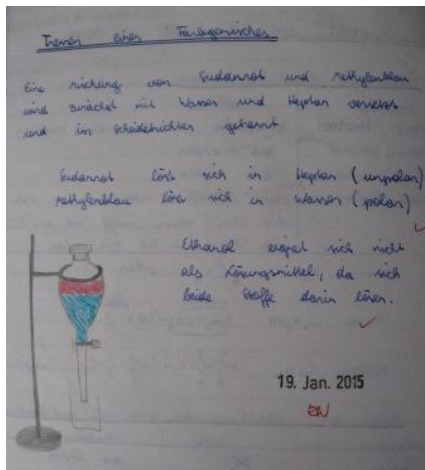 Trennen eines Farbgemisches
Eine Mischung von Sudanrot und Methylenblau
wird zunächst mit Wasser und Heptan versetzt
und im Scheidetrichter getrennt
Sudanrot löst sich in Heptan (unpolar)
Methylenblau löst sich in Wasser (polar)
Ethanol eignet sich nicht
als Lösungsmittel, da sich
beide Stoffe darin lösen.
19. Jan. 2015